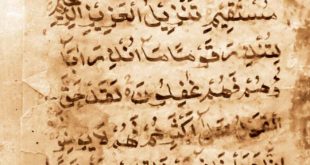 مستقيم تنزيل العزيز الرحيم
لتنذر قوما ما انذر ابا
وهم فهم غفلون لقد حق
القول على اكثرهم فهم لا يومنو